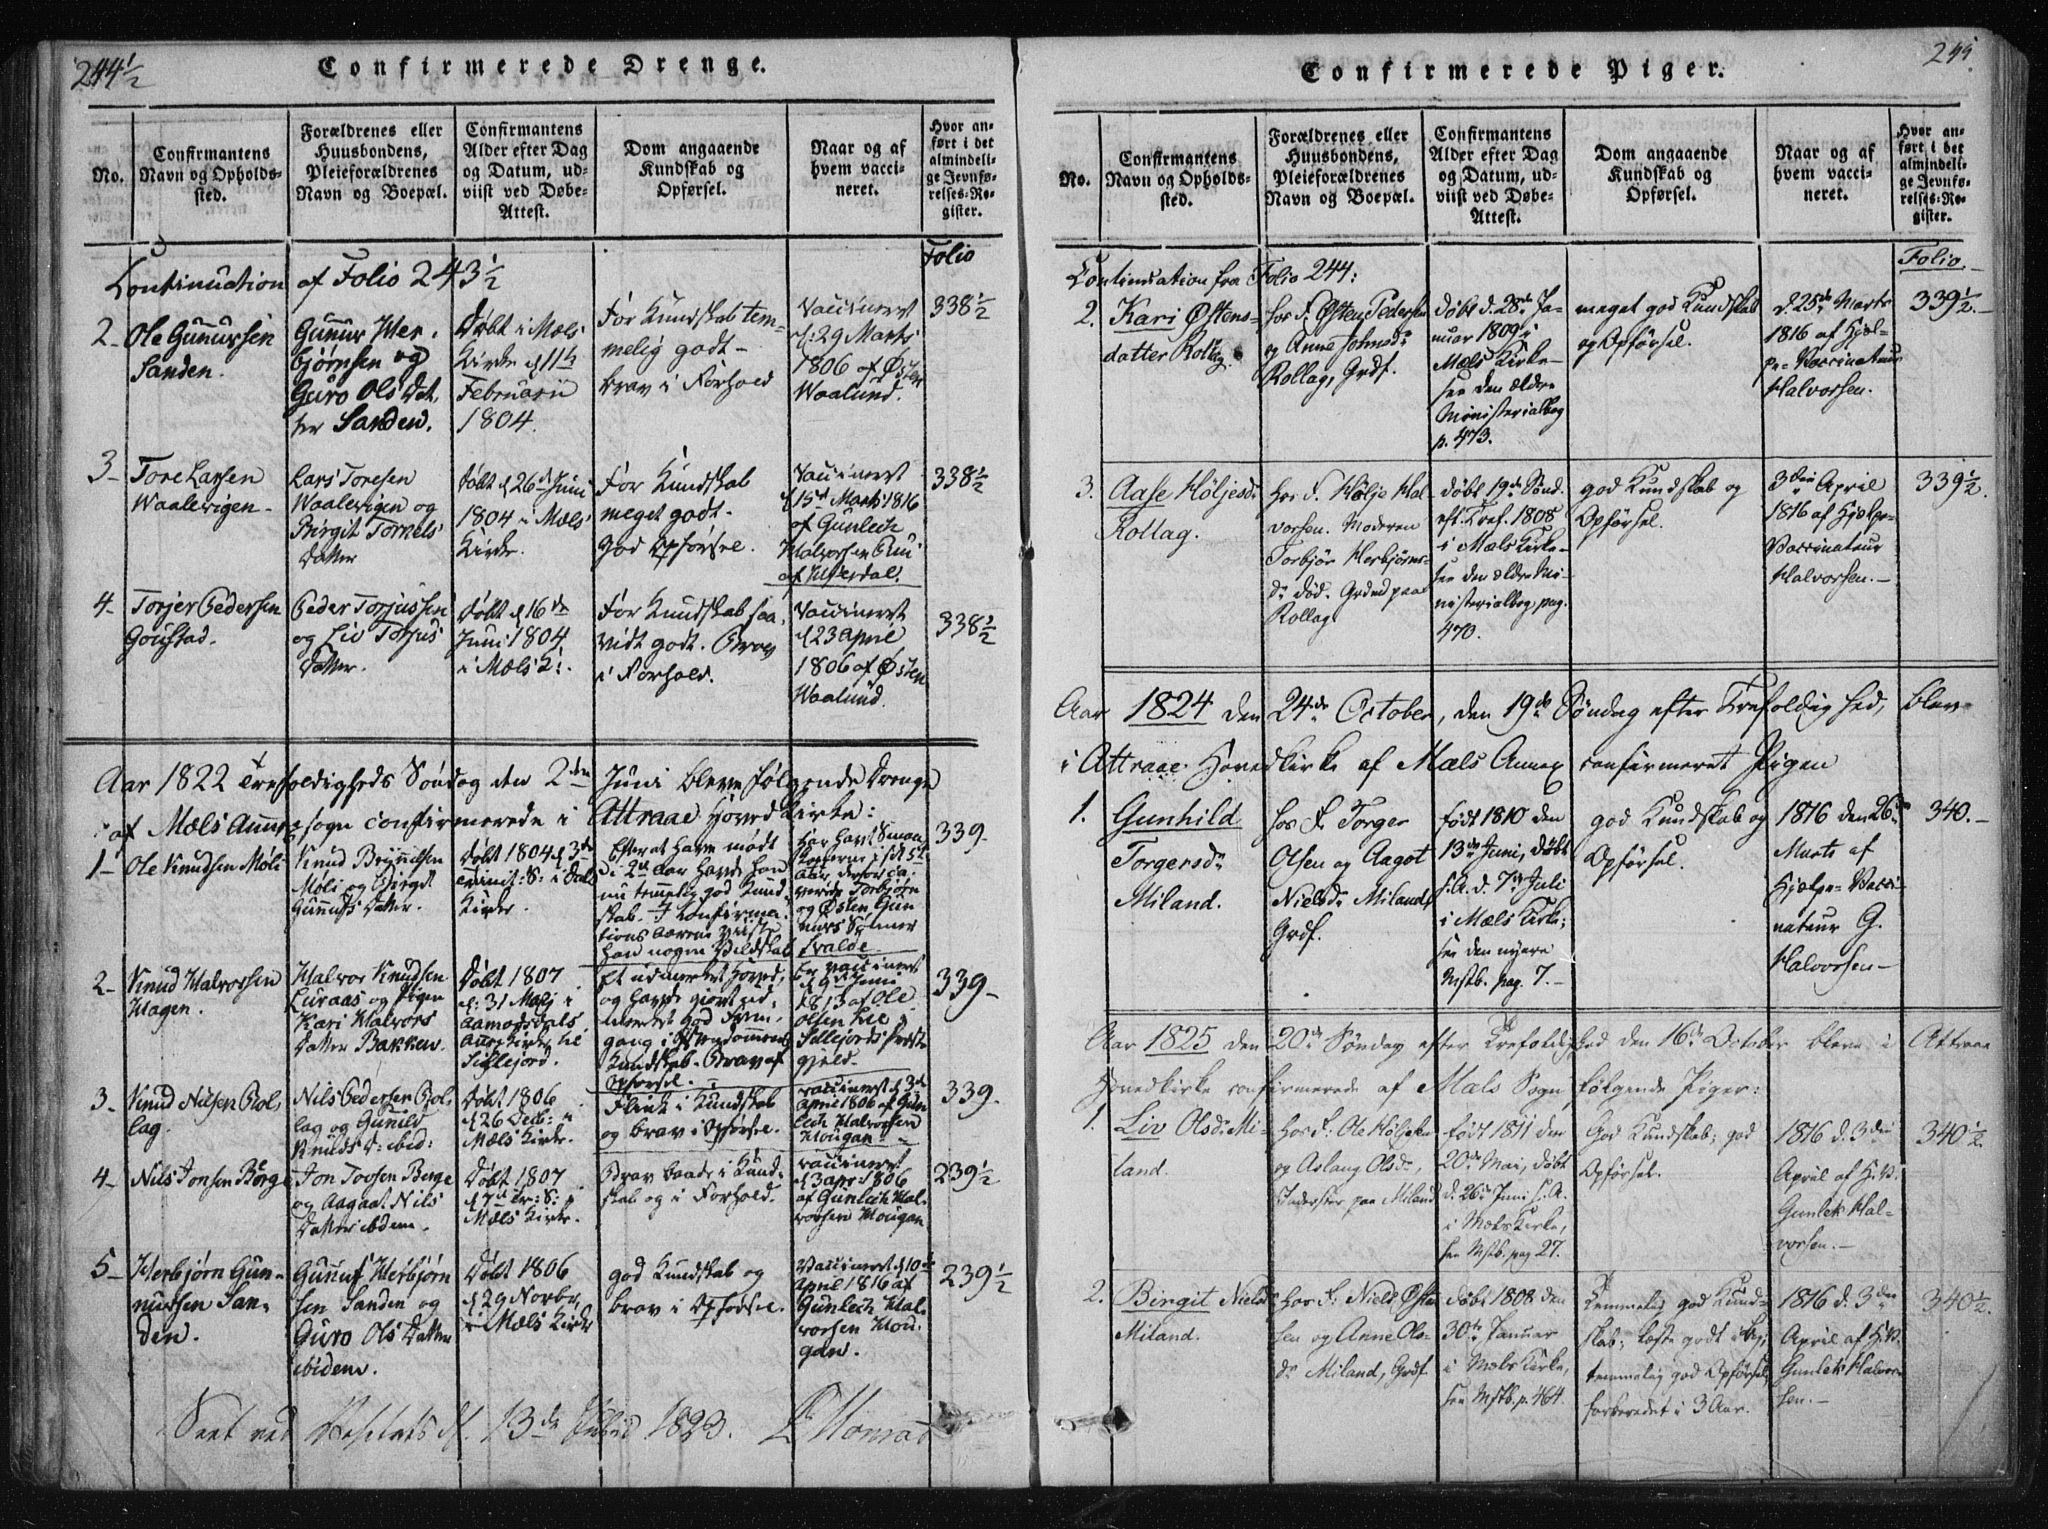 244½
Confirmerede Drenge.
No.
Confirmantens
Navn og Opholds-
sted.
Forældrenes eller
Huusbondens,
Pleieforældrenes
Navn og Boepæl.
Confirmantens
Alder efter Dag
og Datum, ud-
viist ved Døbe-
Attest.
Dom angaaende
Kundskab og
Opførsel.
Naar og af
hvem vacci-
neret.
Hvor an-
ført i det
almindeli-
ge Jevnfø-
relses-Re-
gister.
Folio
Continuation af Folio 243½
2-
Ole Gunursen
Sanden.
Gunur Her-
bjørnsen og
Guro Ols Dat-
ter Sanden.
Døbt i Mæls
Kirke d 11te
Februarii
1804.
For Kundskab tem-
melig godt-
brav i Forhold
Vaccineret
d: 29 Marts
1806 af Østen
Waalund.
338½
3-
Tore Larsen
Waalevigen-
Lars Toresen
Waalevigen og
Birgit Tornels
Datter
Døbt d 26 Juni
1804 i Mæls
Kirke.
For Kundskab
meget godt-
God Opførsel.
Vaccineret
d 15de Marts 1816
af Gunlech
Halvorsen
338½
4-
Torjer Pedersen
Goustad.
Peder Torjussen
og Liv Torjus
Datter.
Døbt d 16de
Juni 1804
i Mæls K:
For Kundskab saa-
vidt godt. Brav
i Forhold.
Vaccineret
d 23 April
1806 af Østen
Waalund.
338½
Aar 1822 Trefoldigheds Søndag den 2den Juni bleve følgende Drenge
af Mæls Annexsogn confirmerede i Attraae Hovedkirke:
1-
Ole Knudsen Møli
Knud Brynnelsen
Møli og Birgit
Gunnufs Datter.
Døbt 1804 d 3de
Trinit: S: i Dals
Kirke.
Efter at have mødt
i 2de Aar havde han
nu temmelig god Kund-
skab. I Confirma-
tions Aarene viiste
han nogen Vildskab
og Østen Gun
339-
2-
Knud Halvorsen
Hagen.
Halvor Knudsen
Luraas og Pigen
Kari Halvors
Datter Bakken.
Døbt 1807
d: 31 Maj i
Aamodsdals
Annex Kirke til
Sillejord.
Et udmærket Hoved,
og havde giort ud-
mærket god Frem-
gang i
Kundskab. Brav af
Opførsel.
Er vaccineret
d 9de Juni
1813 af Ole
Olsen Lie
Sillejords Præste
gjeld.
339-
3-
Knud Nilsen Rol-
lag.
Nils Pedersen Rol-
lag og Gunild
Knuds D: ibid:
Døbt 1806
d 26 Decb: i
Mæls Kirke.
Flink i Kundskab
og brav i Opførsel.
vaccineret d 3de
April 1806 af Gun-
lech Halvorsen
Hougan.
339.
4-
Nils Jonsen Børge
Jon Torsen Berge
og Aagaat Nils
Datter ibidem.
Døbt 1807
d 7de Tr: S: i
Mæls Kirke.
Brav baade i Kund-
skab og i Forhold.
vaccineret
d 3 apr: 1806
af Gunlech Hal-
vorsen Hougan
239½
5-
Herbjørn Gun-
nursen San-
den.
Gunuf Herbjørn
sen Sanden og
Guro Ols Datter
ibidem.
Døbt 1806
d 29 Novbr
i Mæls Kirke
god Kundskab og
brav i Opførsel.
Vaccineret d 10de
April 1816 af
Gunlech Hal-
vorsen Hou-
gan.
239½
Seet ved Visitats d. 13de Julii 1823.
245.
Confirmerede Piger.
No.
Confirmantens
Navn og Opholds-
sted.
Forældrenes eller
Huusbondens,
Pleieforældrenes
Navn og Boepæl.
Confirmantens
Alder efter Dag
og Datum, ud-
viist ved Døbe-
Attest.
Dom angaaende
Kundskab og
Opførsel.
Naar og af
hvem vacci-
neret.
Hvor an-
ført i det
almindeli-
ge Jevnfø-
relses-Re-
gister.
Folio.
Continuation fra Folio 244:
2.
Kari Østens-
datter Rollag
hos F. Østen Pedersen
og Anne Johnsdr
Rollag, Grdf.
døbt d. 28de Ja-
nuar 1809 i
Mæls Kirke-
see den ældre
Ministerialbog
p. 473.
meget god Kundskab
og Opførsel.
d. 25de Marts
1816 af Hjæl-
pe-Vaccinateur
Halvorsen.
339½.-
3.
Aase Høljesdr
Rollag.
hos F. Hølje Hal-
vorsen. Moderen
Torbjør Herbjørns-
dr død. Grdmd paa
Rollag
døbt 19de Sønd.
eft. Tref. 1808
i Mæls Kirke-
see den ældre Mi-
nisterialbog, pag.
470.
god Kundskab og
Opførsel.
3die April
1816 af Hjælpe-
Vaccinateur
Halvorsen.-
339½.
Aar 1824 den 24de October, den 19de Søndag efter Trefoldighed, blev
i Attraae Hovedkirke af Mæls Annex confirmeret Pigen
1.
Gunhild
Torgersdr
Miland.
hos F. Torger
Olsen og Aagot
Nielsdr Miland,
Grdf.
født 1810 den
13de Juni, døbt
s. A. d. 7de Juli
i Mæls Kirke;
see den nyere
Mstb. pag. 7.-
god Kundskab og
Opførsel.
1816 den 26de
Marts af
Hjælpe-Vacci-
nateur G.
Halvorsen-
340.-
Aar 1825 den 20de Søndag efter Trefoldighed den 16de October bleve i Attraae
Hovedkirke confirmerede af Mæls Sogn følgende Piger:
1.
Liv Olsdr Mi-
land.
Hos F: Ole Høljesen
og Aslaug Olsdr,
Inderster paa Miland
født 1811 den
20de Mai, døbt
d. 26de Juni s. A.
i Mæls Kirke,
see Mstb. pag 27.
God Kundskab; god
Opførsel.
1816 d. 3die
April af H.V.
Gunlek Hal-
vorsen.-
340½.
2.
Birgit Nielsdr
Miland.
Hos F: Niels Øste
sen og Anne Ols-
dr Miland, Grdf
døbt 1808 den
30te Januar
i Mæls Kirke,
see Mstb. p. 464.
Temmelig god Kund-
skab; læste godt i Bog;
temmelig god Opførsel,
forberedet i 3 Aar.
1816 d. 3die
April af H.V.
Gunlek Halvor-
sen.-
340½.